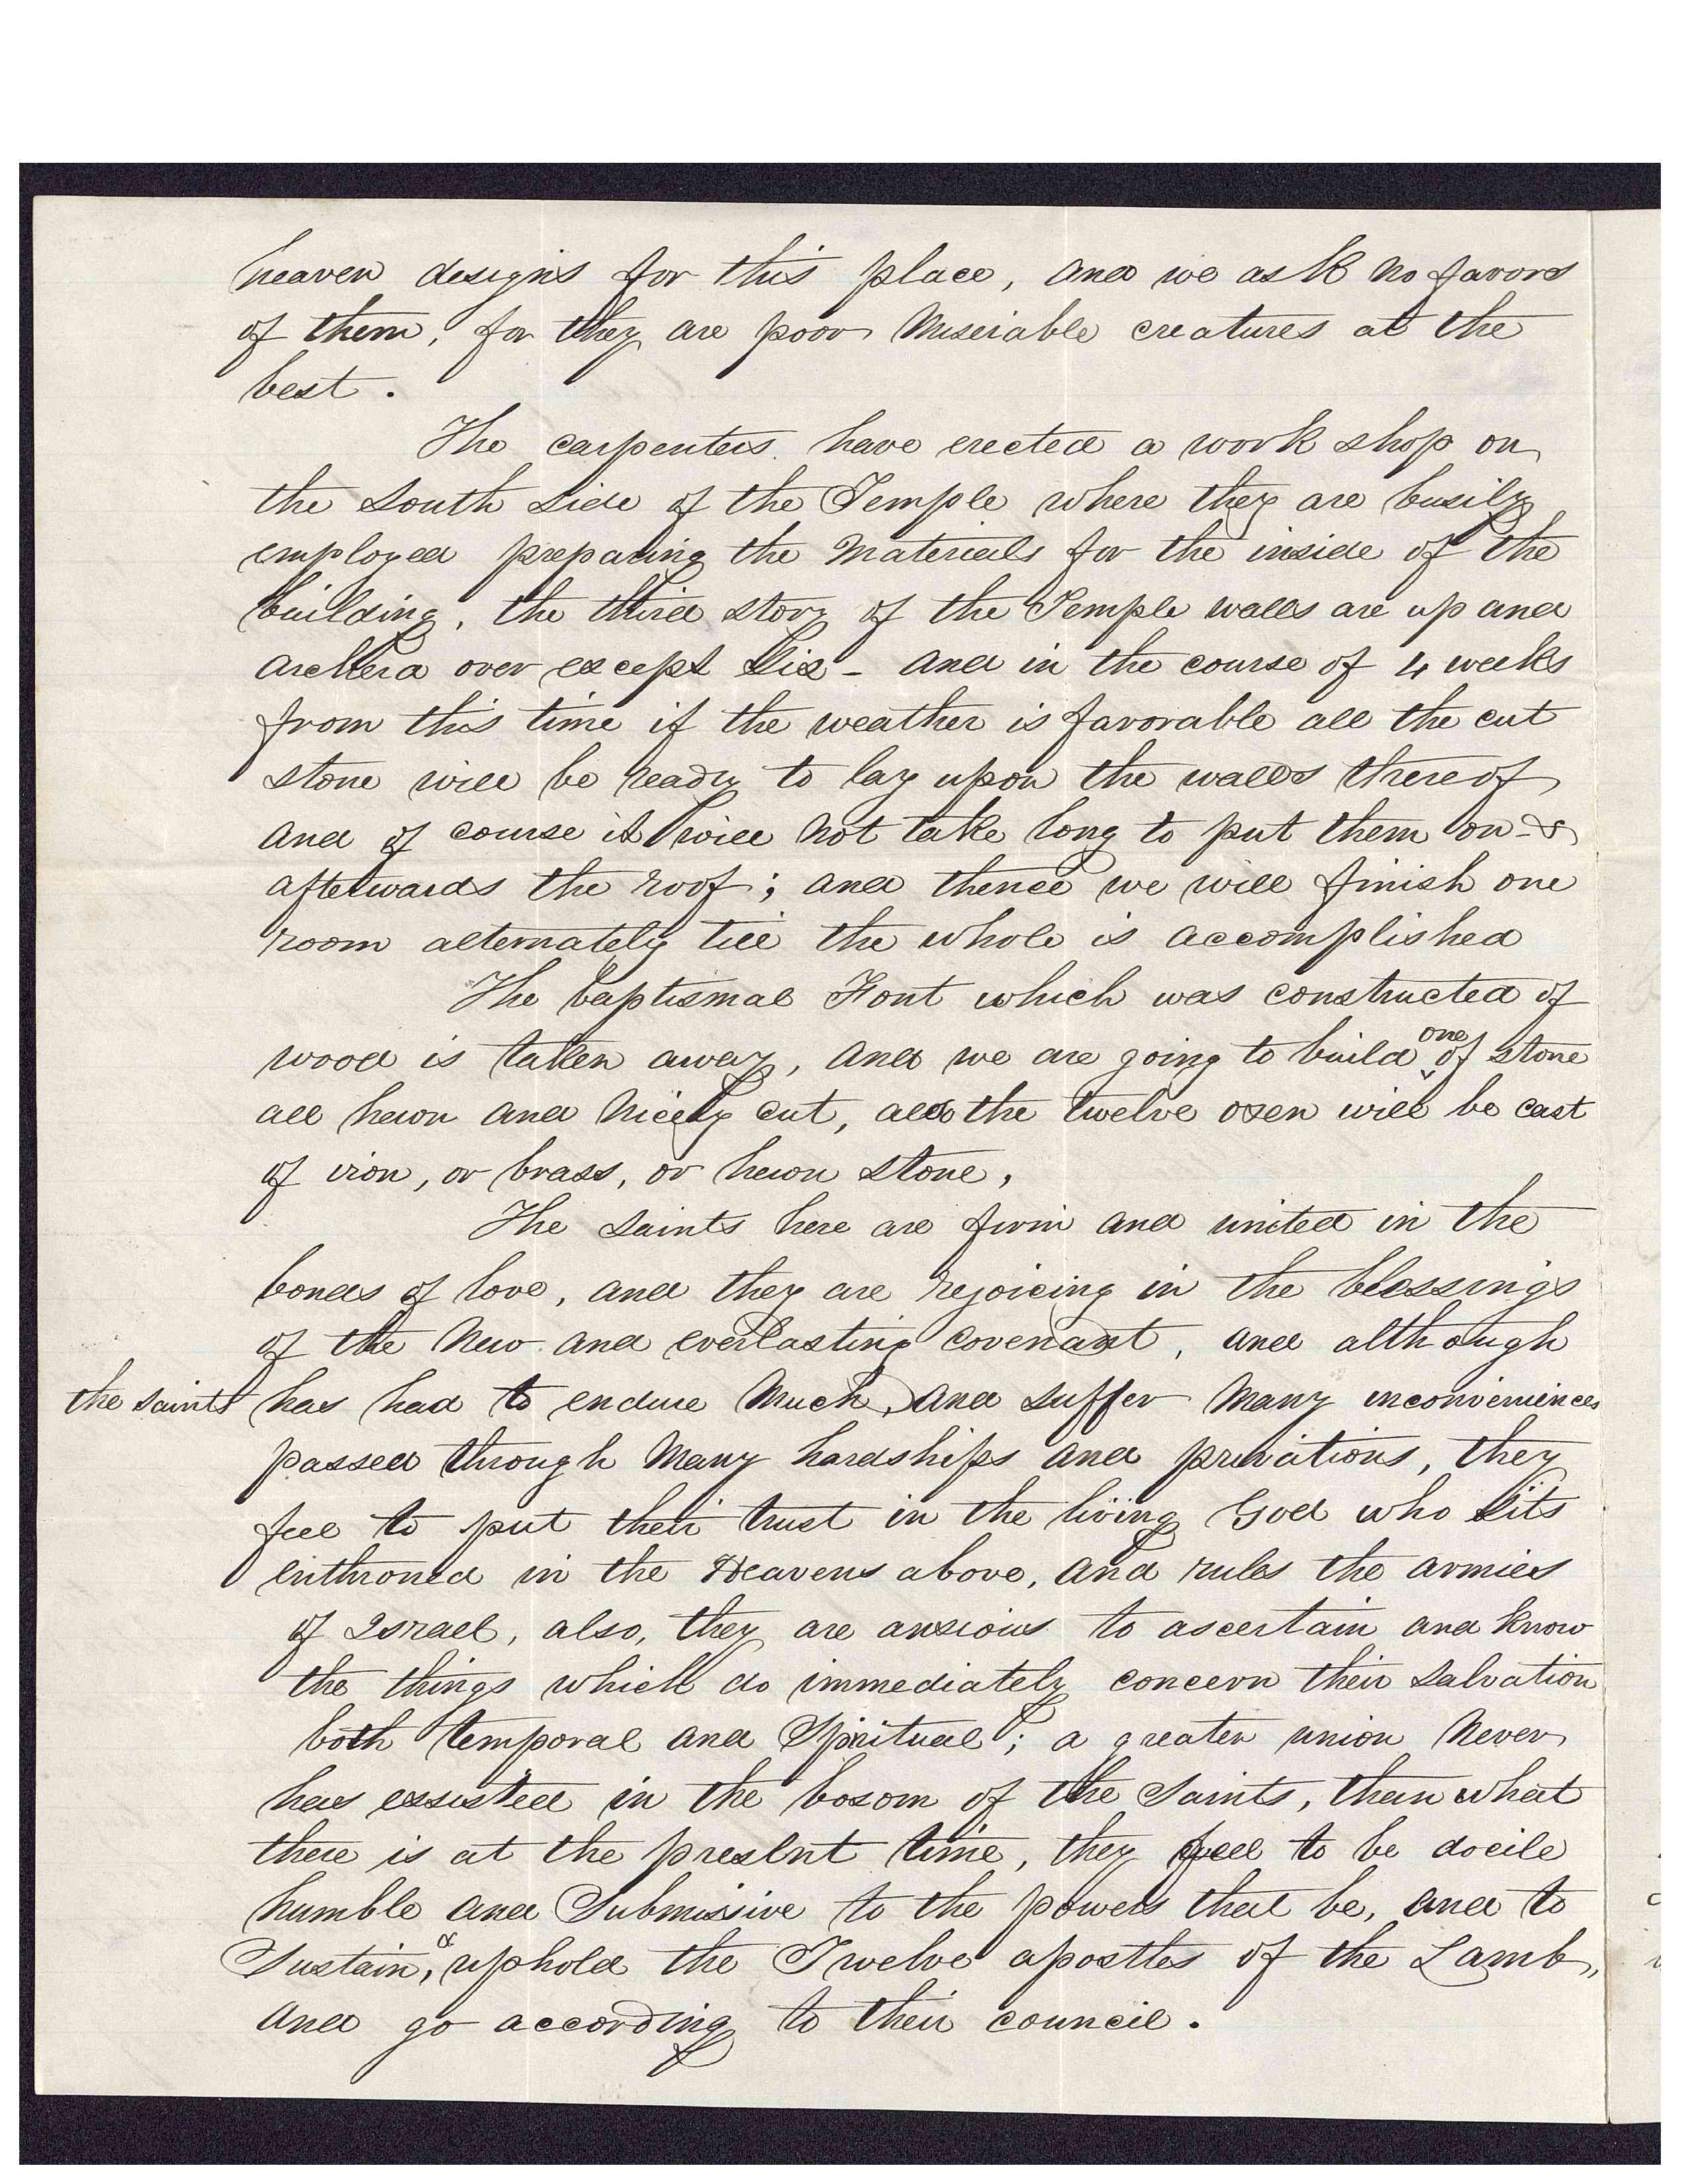 heaven designs for this place, and we ask no favors
of them, for they are poor miserable creatures at the
best.
The carpenters have erected a work shop on
the South Side of the Temple where they are busily
employed preparing the Materials for the inside of the
building, the third story of the Temple walls are up and
archera over except Six - and in the course of 4 weeks
from this time if the weather is favorable all the cut
stone will be ready to lay upon the walls thereof
and of course it will not take long to put them on &
afterwards the roof; and thence we will finish one
room alternately till the whole is accomplished
The baptismal Font which was constructed of
wood is taken away, and we are going to build one of stone
all hewn and Nicely cut, also the twelve oxen will be cast
of iron, or brass, or hewn Stone,
The Saints here are firm and united in the
bonds of love, and they are rejoicing in the blessings
of the New and everlasting covenant, and although
the saints has had to endure Much, and suffer Many inconveniences
passed through Many hardships and privations, they
feel to put their trust in the living God who Sits
enthroned in the Heavens above, and rules the armies
of Israel, also, they are anxious to ascertain and know
the things which do immediately concern their Salvation
both temporal and Spiritual; a greater union Never
has exsisted in the bosom of the Saints, than what
there is at the present time, they feel to be docile
humble and Submissive to the powers that be, and to
Sustain, & uphold the Twelve apostles of the Lamb,
and go according to their council.